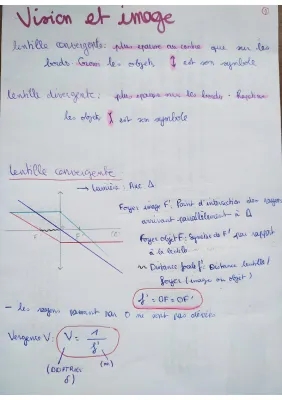 Vision et image
①
lentille convergente: plus épaisse au centre que sur les
bords. Grossit les objets ↕ est son symbole
lentille divergente: plus épaisse sur les bords.
les objets est son symbole
lentille convergente
→ Lumière: Axe Δ
Foyer image F': Point d'intersection des rayons
arrivant parallèlement à Δ
Foyer objet F: Symétrie de F' par rapport
à la lentille
Distance focale f': Distance lentille/
foyer (image ou objet)
f' = OF = OF'
- les rayons passant par O ne sont pas déviés
Vergence V: V = 1/f'
(DIOPTRIES δ) (m)